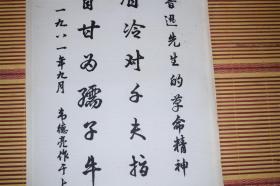 鲁迅先生的革命精神
眉冷对千夫指
首甘为孺子牛
一九八一年九月 韦德亮作于上